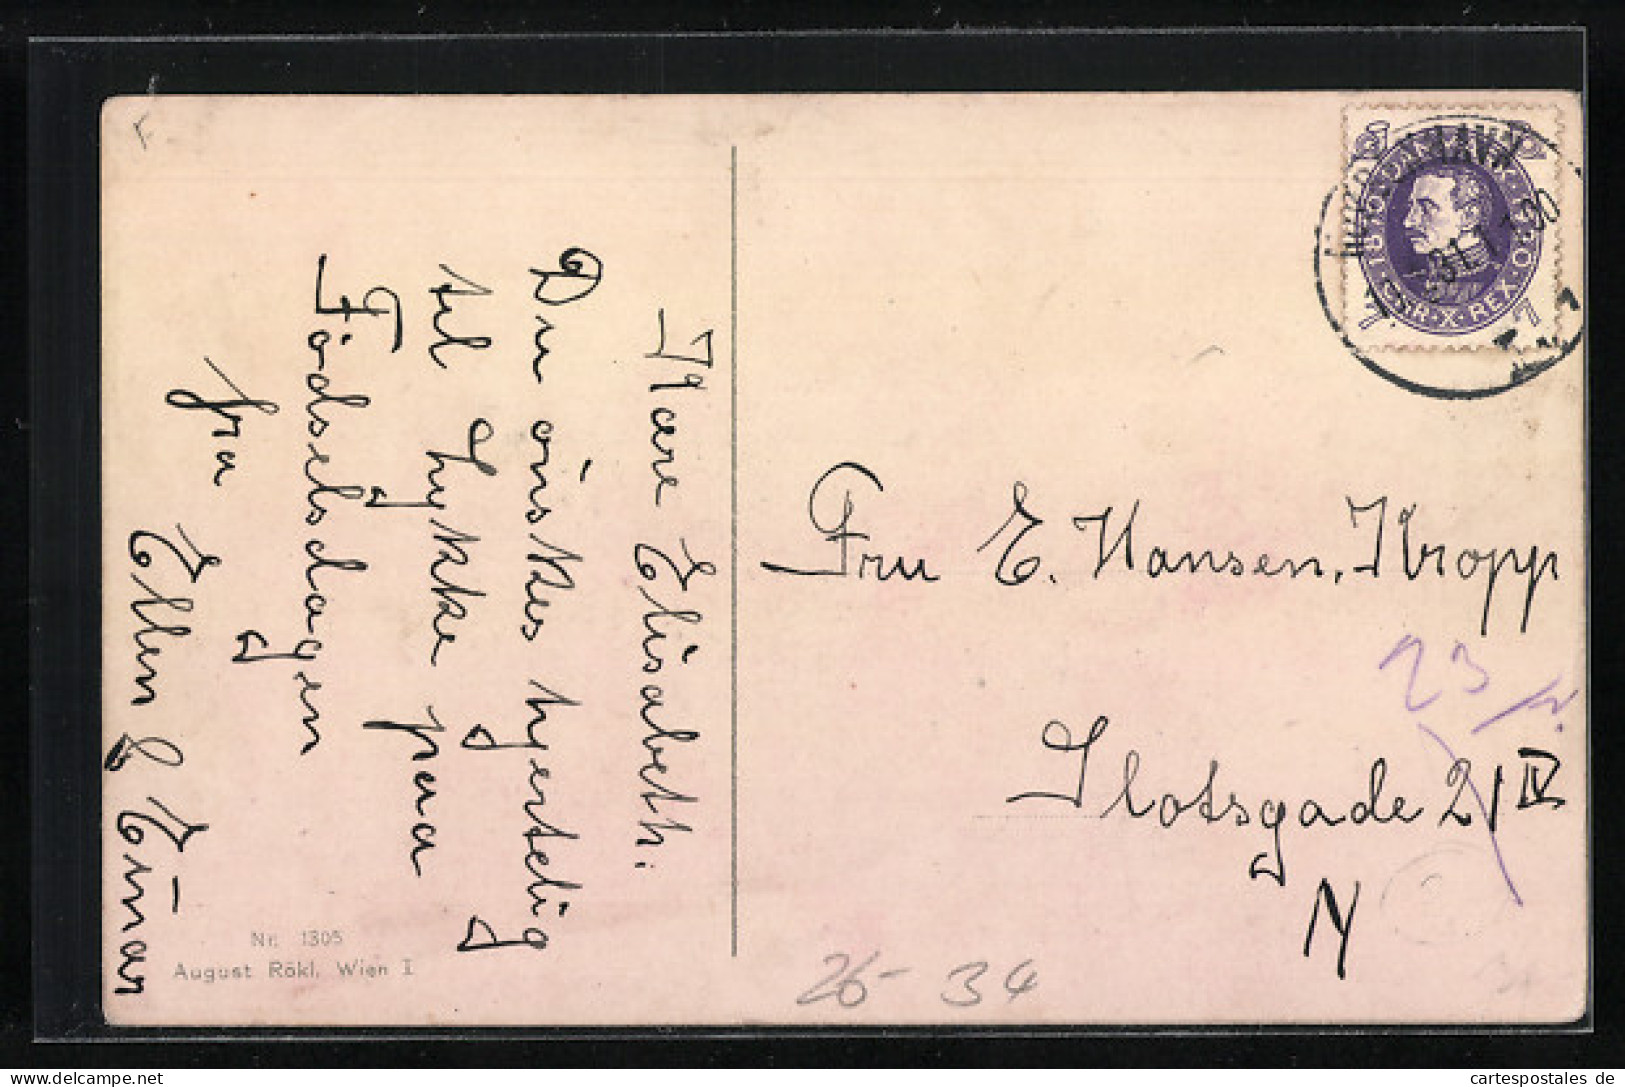 F
Kære Elisabeth:
Du önskes hjerteligt
til Lykke paa
Födselsdagen
fra
Ellen & Einar
Nr. 1305
August Rökl, Wien I
DANMARK
1870
1930
CHR·X·REX
7 7
Fru E. Hansen, Kropp
Slotsgade 21 IV
N
23
26- 34
cartespostales de
cartespostales.de